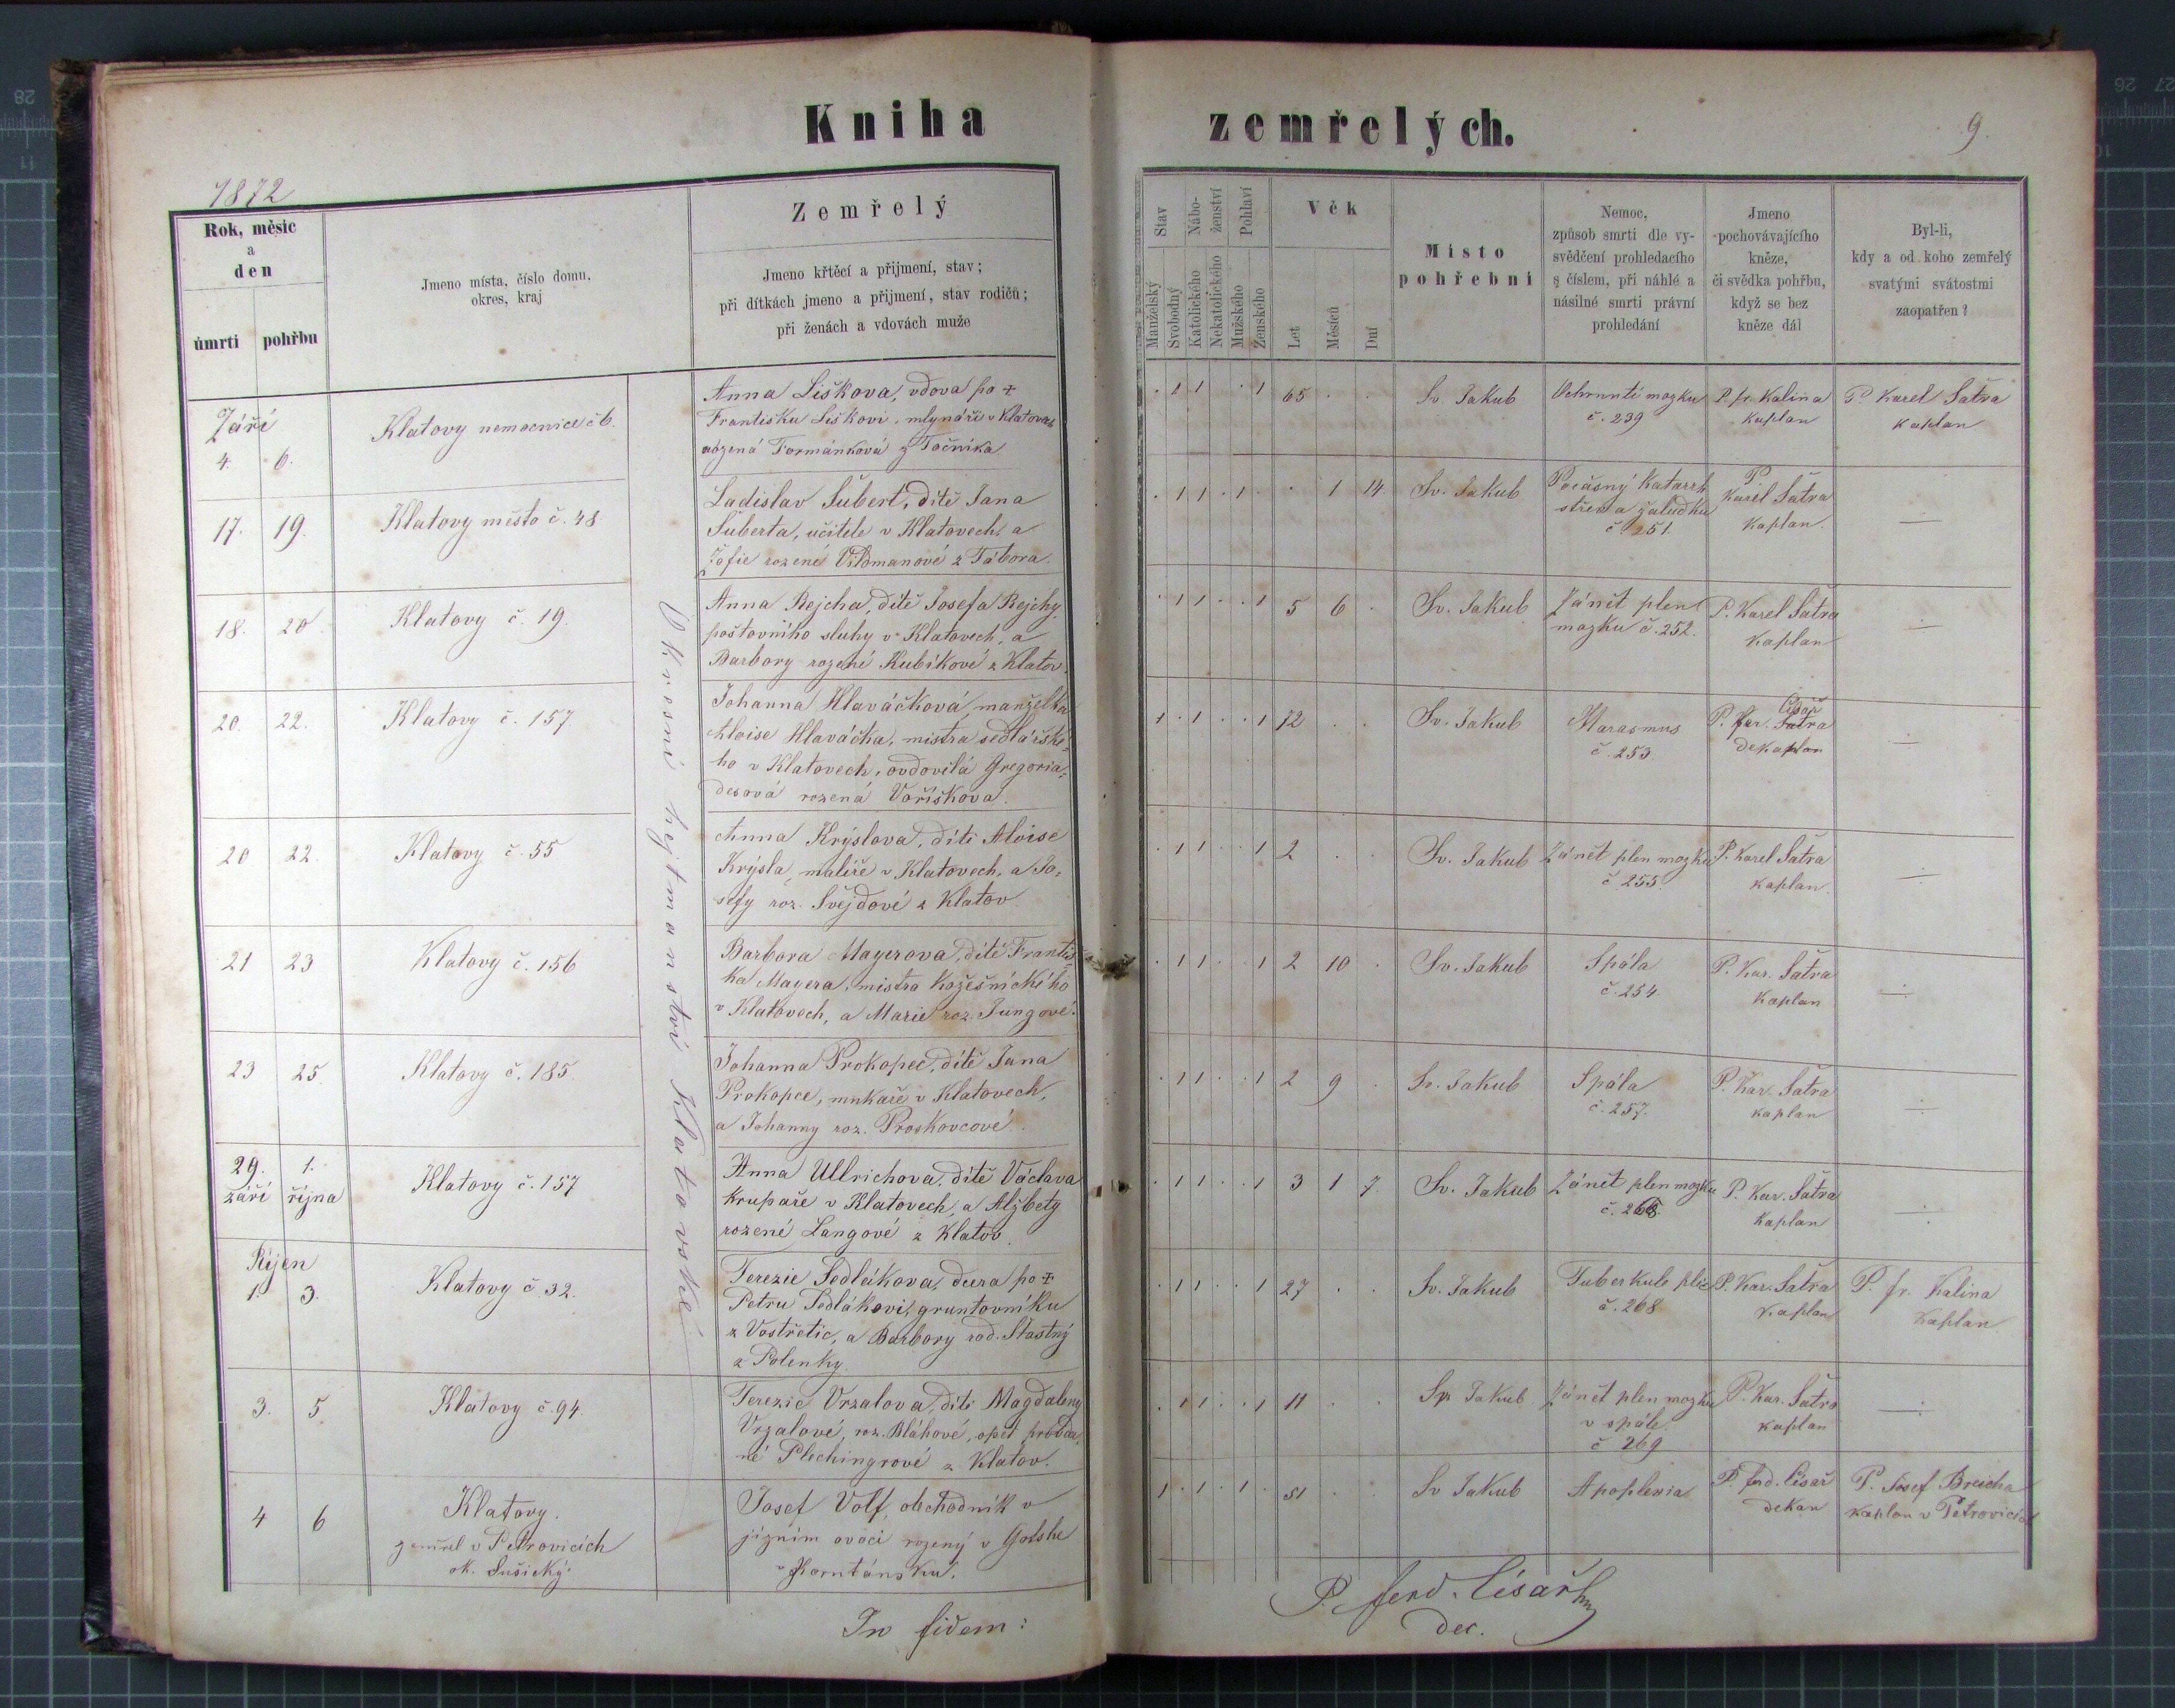 Kniha zemřelých.
9.
1872
Rok, měsíc
a
den
úmrtí
pohřbu
Jmeno místa, číslo domu,
okres, kraj
Zemřelý
Jmeno křtěcí a přijmení, stav;
při dítkách jmeno a přijmení, stav rodičů;
při ženách a vdovách muže
Stav
Manželský
Svobodný
Nábo-
ženství
Katolického
Nekatolického
Pohlaví
Mužského
Ženského
Věk
Let
Měsíců
Dní
Místo
pohřební
Nemoc,
způsob smrti dle vy-
svědčení prohledacího
s číslem, při náhlé a
násilné smrti právní
prohledání
Jmeno
pochovávajícího
kněze,
či svědka pohřbu,
když se bez
kněze dál
Byl-li,
kdy a od koho zemřelý
svatými svátostmi
zaopatřen?
Okresní hejtmanství Klatovské
Září
4. 6.
Klatovy nemocnice č 6.
Anna Liškova, vdova po +
Františku Liškovi, mlynáři v Klatovech
rozená Formánková z Točníka
. 1 1 . . 1 65 . .
Sv. Jakub
Ochrnutí mozku
č. 239
P. fr. Kalina
kaplan
P. Karel Šatra
kaplan
17. 19.
Klatovy město č. 48
Ladislav Šubert, dítě Jana
Šuberta, učitele v Klatovech, a
Žofie rozené Vidmanové z Tábora.
. 1 1 . 1 . . 1 14
Sv. Jakub
Počásný Katarrh
střev a žaludku
č. 251.
P
Karel Šatra
Kaplan.
18. 20.
Klatovy č. 19.
Anna Rejcha, dítě Josefa Rejchy,
poštovního sluhy v Klatovech, a
Barbory rozené Kubíkové z Klatov.
. 1 1 . . 1 5 6 .
Sv. Jakub
Zánět plen
mozku č. 252.
P. Karel Šatra
Kaplan
20. 22.
Klatovy č. 157.
Johanna Hlaváčková, manželka
Aloise Hlaváčka, mistra sedlářské-
ho v Klatovech, ovdovilá Gregoria-
desová rozená Voříškova.
1 . 1 . . 1 72 . .
Sv. Jakub
Marasmus
č. 253.
Císař
P. fer. Šatra
dekaplan
20 22.
Klatovy č. 55
Anna Krýslova, dítě Aloise
Krýsla, malíře v Klatovech, a Jo-
sefy roz. Švejdové z Klatov
. 1 1 . . 1 2 . .
Sv. Jakub
Zánět plen mozku
č. 255.
P. Karel Šatra
kaplan.
21 23
Klatovy č. 156
Barbora Mayerova, dítě Františ-
ka Mayera, mistra kožešnického
v Klatovech, a Marie roz. Jungové.
. 1 1 . . 1 2 10 .
Sv. Jakub
Spála
č. 254.
P. Kar. Šatra
Kaplan
23 25.
Klatovy č. 185.
Johanna Prokopec, dítě Jana
Prokopce, mukaře v Klatovech,
a Johanny roz. Proskovcové.
. 1 1 . . 1 2 9 .
Sv. Jakub
Spála
č. 257.
P. Kar. Šatra
kaplan
29. 1.
září října
Klatovy č. 157
Anna Ullrichova, dítě Václava
krupaře v Klatovech, a Alžbety
rozené Langové z Klatov.
. 1 1 . . 1 3 1 7.
Sv. Jakub
Zánět plen mozku
P. Kar. Šatra
kaplan
Říjen
1. 3.
Klatovy č. 32.
Terezie Sedlákova, dcera po +
Petru Sedlákovi, gruntovníku
z Vostřetic, a Barbory rod. Šťastný
z Polenky.
. 1 1 . . 1 27 . .
Sv. Jakub
Tuberkule plic
č. 268
P. Kar. Šatra
Kaplan
P. fr. Kalina
Kaplan.
3. 5
Klatovy č. 94.
Terezie Vrzalova, dítě Magdaleny
Vrzalové, roz. Bláhové, opět provda-
né Plechingrové z Klatov.
. 1 1 . . 1 11 . .
Sv. Jakub
Zánět plen mozku
v spále.
č 269
P. Kar. Šatra
kaplan
4 6
Klatovy.
zemřel v Petrovicích
ok. Sušický.
Josef Volf, obchodník v
jižním ovoci rozený v Gotshe
v Korntánsku.
1 . 1 . 1 . 51 . .
Sv Jakub
Apoplexia
P. ferd. Císař
dekan
P. Josef Breicha
kaplan v Petrovicích
In fidem:
P. ferd. Císař
dec.